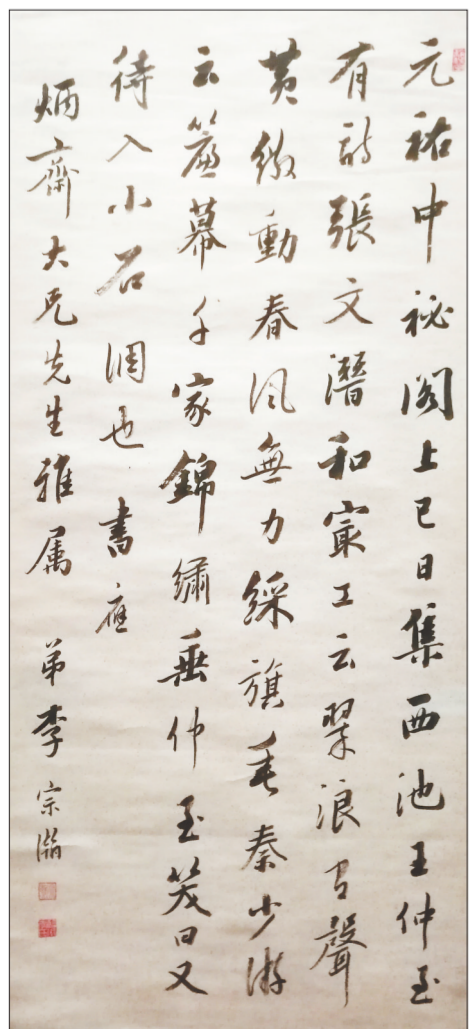 元祐中祕閣上巳日集西池王仲至
有詩張文潛和㝡工云翠浪有聲
黃繖動春風無力綵旗垂秦少游
云簾幕千家錦繡垂仲至笑曰又
待入小石調也 書應
炳齋大兄先生雅属 弟李宗瀚